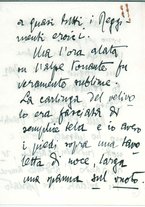 a quasi tutti i Reggi
menti eroici.
Ma l'ora alata
su l'alpe tonante fu
veramente sublime.
La carlinga del velivo
lo era fasciata di
semplice tela e io avevo
i piedi sopra una tavo
letta di noce, larga
una spanna sul vuoto